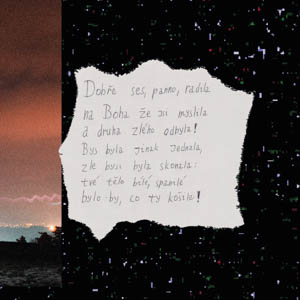 Dobře ses, panno, radila
na Boha že jsi myslila
a druha zlého odbyla!
Bys byla jinak jednala,
zle bysi byla skonala:
tvé tělo bílé, spanilé
bylo by, co ty košile!